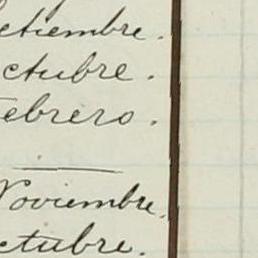 etiembre.
ctubre.
ebrero.
Noviembre.
ctubre.